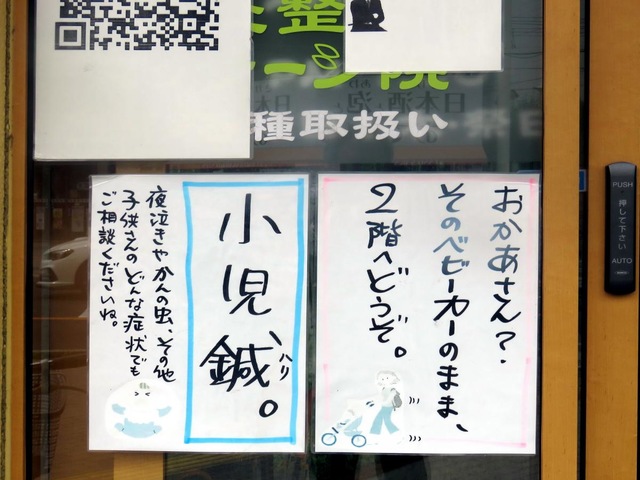 整
院
種取扱い
おかあさん？
そのベビーカーのまま、
2階へどうぞ。
小児鍼。
ハリ
夜泣きやかんの虫、その他
子供さんのどんな症状でも
ご相談くださいね。
PUSH
押して下さい
AUTO